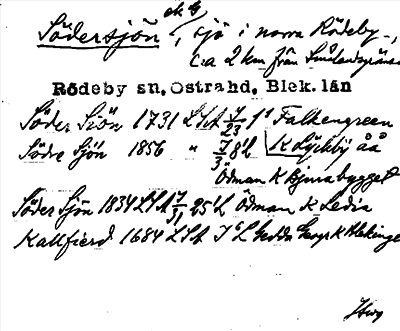 Södersjön, sjö i norra Rödeby-,
c:a 2 km från Smålandsgränsen
Rödeby sn, Östra hd, Blek. län
Söder Siön 1731 LSA 7/23 1¹ Falkengreen
K Lyckby åå
Södre Sjön 1856 " 7/3 8²L
Ödman K Bjurabygget
Söder Sjön 1834 LSA 7/31 25¹L Ödman K Ledia
Kallfierd 1684 LSA Gedda K Blekinge